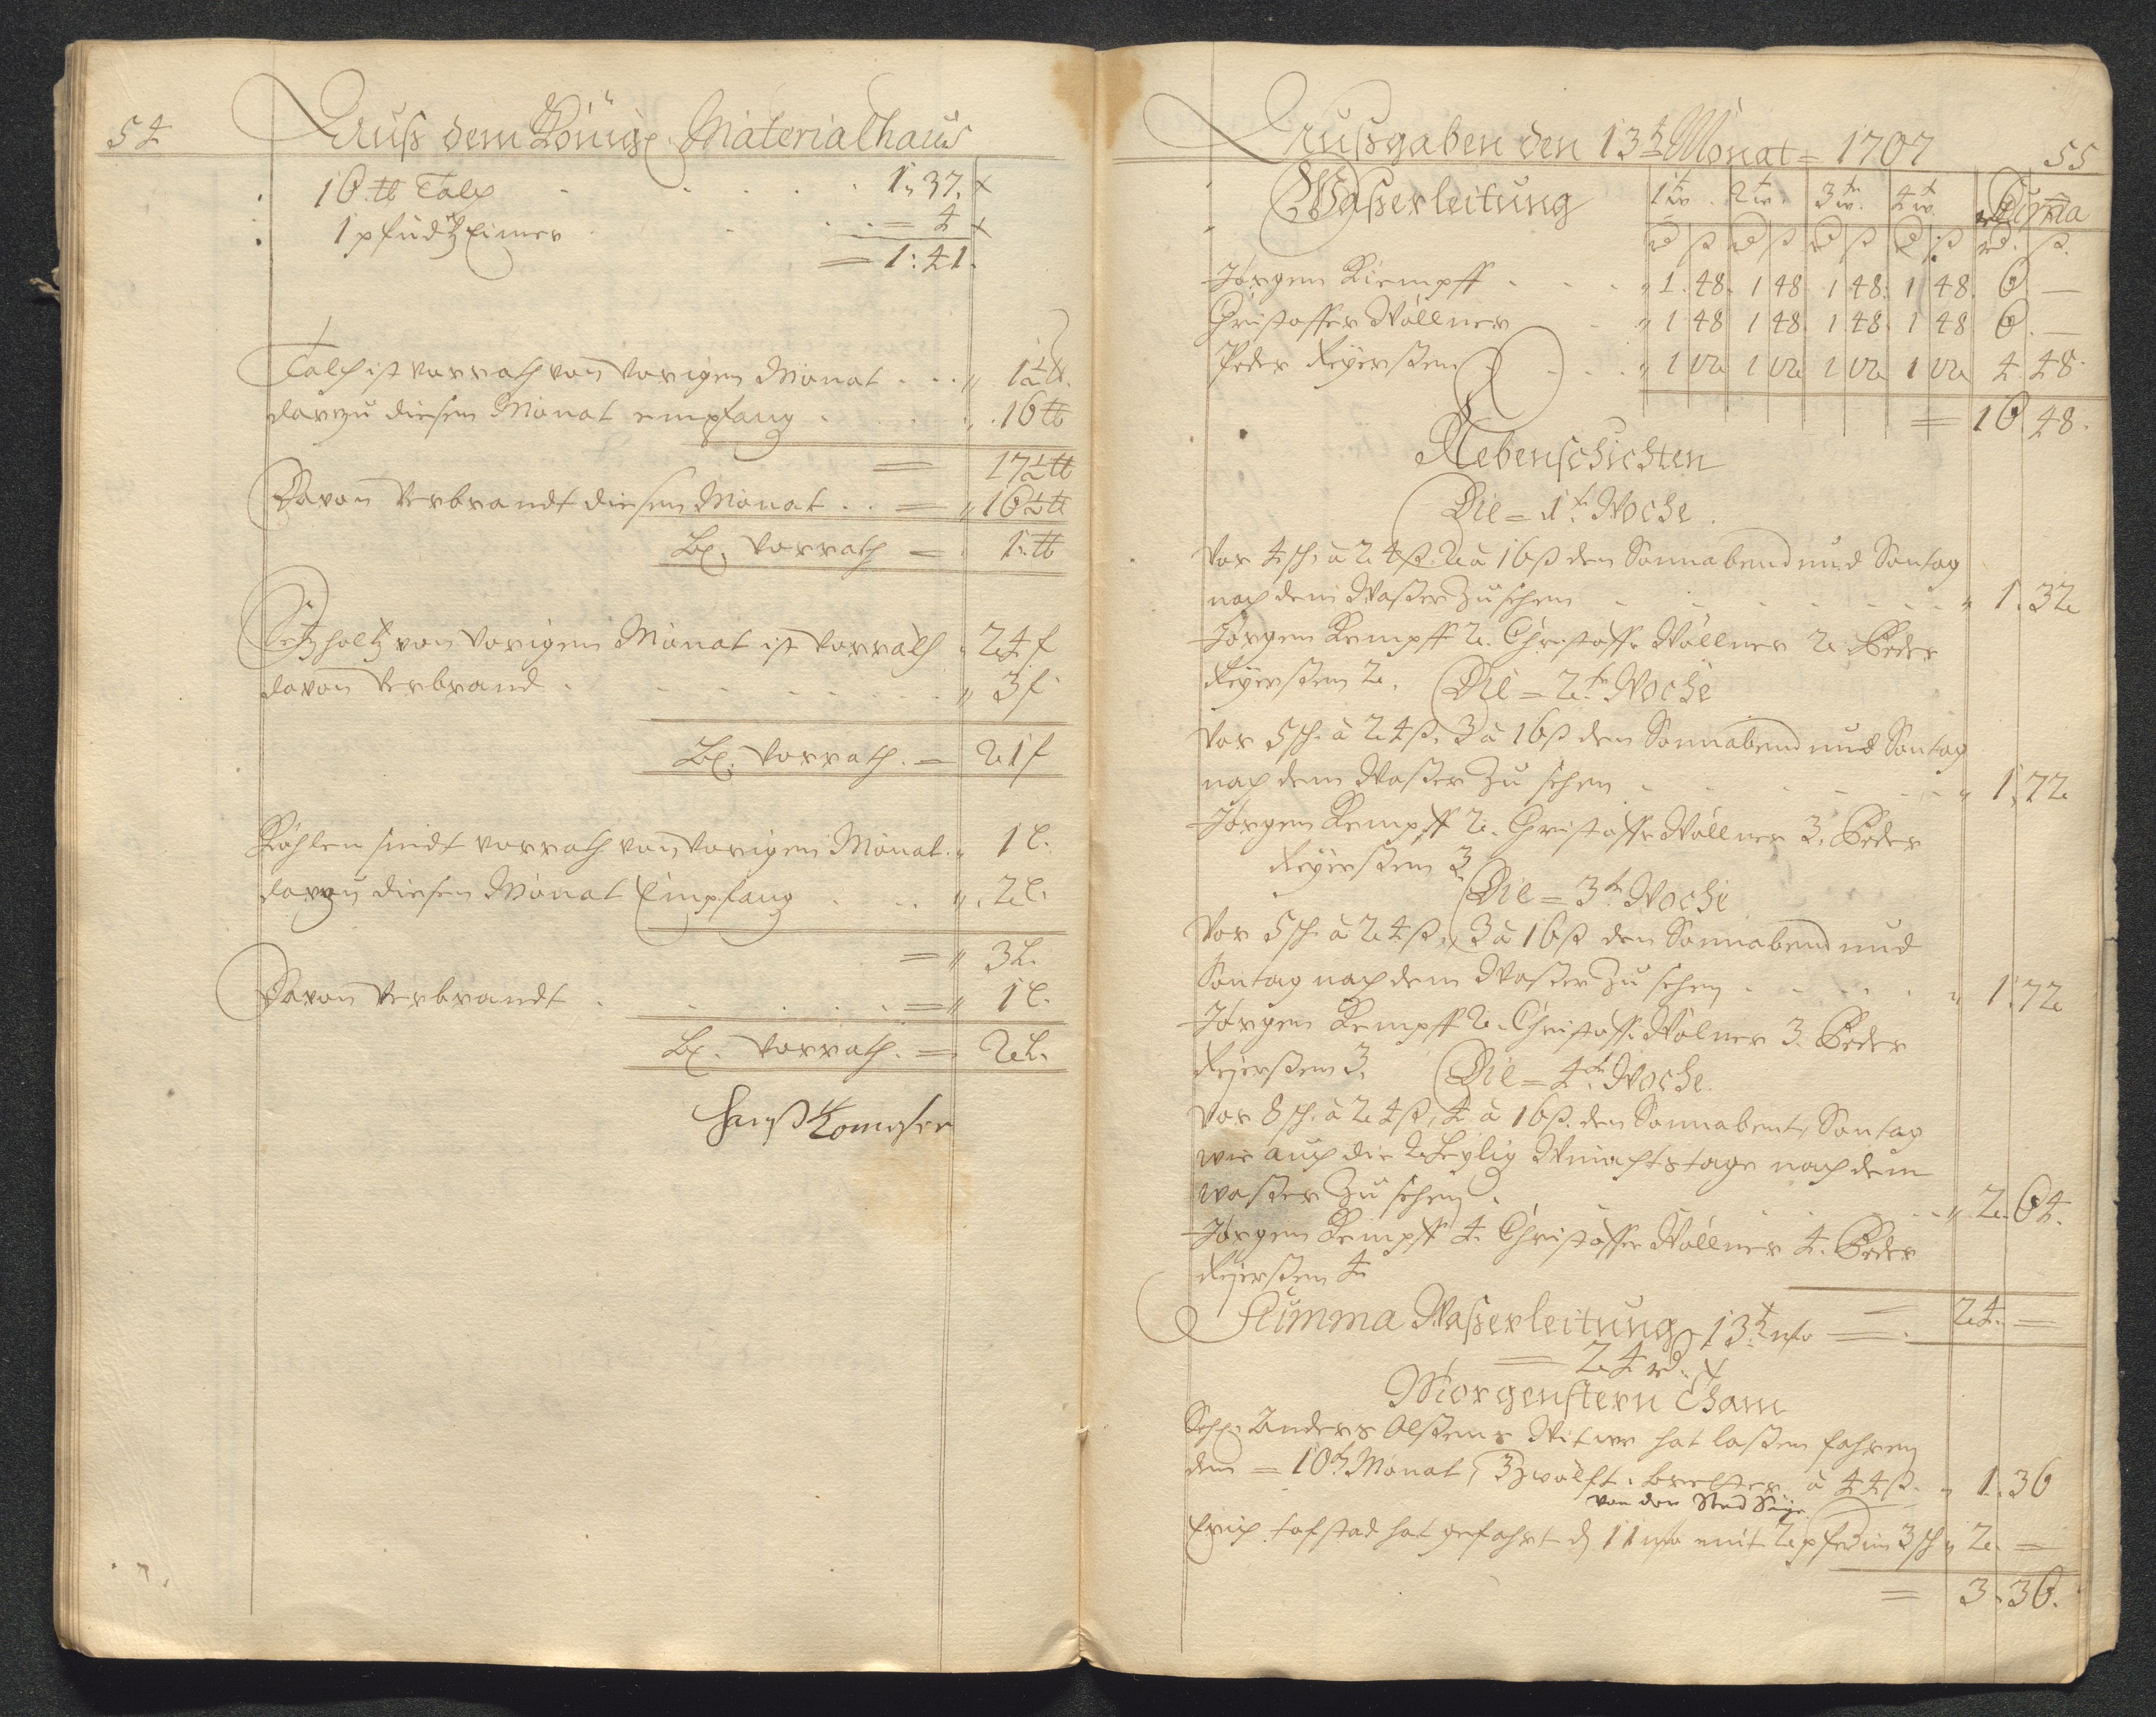 54
Auß dem Königl Materialhaus
16 ℔ Talch . . . . . 1 „ 37 „ x
1 pfudtz Eimer . . . . = 4 x
= 1 : 41 .
Talch ist vorrath von vorigen Monat . . . „ 1½ ℔
darzu diesen Monat empfang . . . „ 16 ℔
= 17½ ℔
Davon verbrandt diesen Monat . . = „ 16½ ℔
Bl. vorrath = 1 : ℔
Setzholtz von vorigem Monat ist vorrath „ 24 f
davon verbrand . . . . . „ 3 f
Bl. vorrath . = 21 f
Kohlen sindt vorrath von vorigen Monat . „ 1 l.
darzu diesen Monat Empfang . . . „ 2 l.
= „ 3 l.
Davon verbrandt . . . . . = „ 1 l.
Bl. vorrath . = 2 l.
Hanß
Ausgaben den 13t Monat = 1707
55
Waßerleitung
1t w. 2t w. 3t w. 4t w. Suma
rd ß rd ß rd ß rd ß rd. ß.
Jørgen Kiempff . . . „ 1. 48. 1 48. 1 48. 1 48. 6. —
Christoffer Wöllner . . „ 1 48 1 48. 1 48. 1 48 6. —
Peder Reyerßen . . . „ 1 12 1 12 1 12 1 12 4 48.
= 16 48.
Nebenschichten
Die = 1t Woche.
Vor 4 sh. à 24 ß. 2 à 16 ß den Sonnabend und Sontag
nach dem Waßer zu sehen . . . . . „ 1. 32
Jørgen Kempff 2. Christoff. Wöllner 2. Peder
Reyerßen 2. Die = 2t Woche
Vor 5 sh. à 24 ß. 3 à 16 ß den Sonnabend und Sontag
nach dem Waßer zu sehen . . . . . „ 1. 72
Jørgen Kempff 2. Christoffr Wöllner 3. Peder
Reyerßen 3. Die = 3t Woche
Vor 5 sh. à 24 ß, 3 à 16 ß den Sonnabend und
Sontag nach dem Waßer zu sehen . . . . „ 1. 72
Jørgen Kempff 2. Christoff. Wölner 3. Peder
Rejerßen 3. Die = 4t Woche.
Vor 8 sh. à 24 ß, 4 à 16 ß. den Sonnabent, Sontag
wie auch die 2 Heylig Winachtstage nach dem
waßer zu sehen . . . . . „ 2. 64.
Jørgen Kempff 4. Christoffer Wöllner 4. Peder
Rejerßen 4
Summa Waßerleitung 13t mo = . 24. =
= 24 rd. x
Morgenstern Cham
Sehl. Anders Olßens Witwe hat laßen fahren
den = 10t Monat, 3 zwölft. bretter à 44 ß. „ 1. 36
von der
Erich tofstad hat gefahrt d 11 mo mit 2 pferd in 3 sh „ 2. =
= 3. 36.